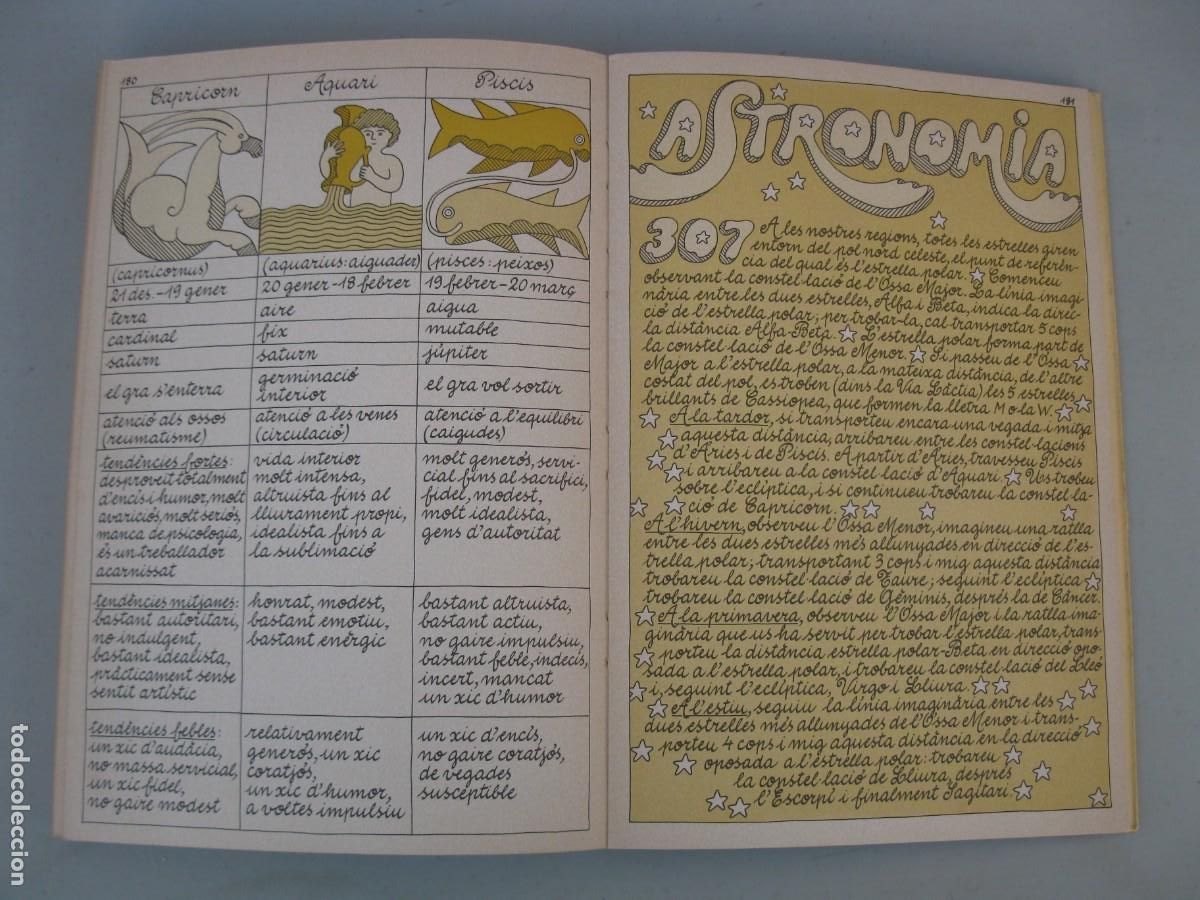 180
Capricorn
Aquari
Piscis
(capricornus)
(aquarius: aiguader)
(pisces: peixos)
21 des.-19 gener
20 gener-18 febrer
19 febrer-20 març
terra
aire
aigua
cardinal
fix
mutable
saturn
saturn
júpiter
el gra s'enterra
germinació
interior
el gra vol sortir
atenció als ossos
(reumatisme)
atenció a les venes
(circulació)
atenció a l'equilibri
(caigudes)
tendències fortes:
desproveït totalment
d'encís i humor, molt
avariciós, molt seriós,
manca de psicologia,
és un treballador
acarnissat
vida interior
molt intensa,
altruista fins al
lliurament propi,
idealista fins a
la sublimació
molt generós, servi-
cial fins al sacrifici,
fidel, modest,
molt idealista,
gens d'autoritat
tendències mitjanes:
bastant autoritari,
no indulgent,
bastant idealista,
pràcticament sense
sentit artístic
honrat, modest,
bastant emotiu,
bastant enèrgic
bastant altruista,
bastant actiu,
no gaire impulsiu,
bastant feble, indecís,
incert, mancat
un xic d'humor
tendències febles:
un xic d'audàcia,
no massa servicial,
un xic fidel,
no gaire modest
relativament
generós, un xic
coratjós,
un xic d'humor,
a voltes impulsiu
un xic d'encís,
no gaire coratjós,
de vegades
susceptible
181
ASTRONOMIA
307
A les nostres regions, totes les estrelles giren
entorn del pol nord celeste, el punt de referèn-
cia del qual és l'estrella polar. Comenceu
observant la constel·lació de l'Ossa Major. La línia imagi-
nària entre les dues estrelles, Alfa i Beta, indica la direc-
ció de l'estrella polar; per trobar-la, cal transportar 5 cops
la distància Alfa-Beta. L'estrella polar forma part de
la constel·lació de l'Ossa Menor. Si passeu de l'Ossa
Major a l'estrella polar, a la mateixa distància, de l'altre
costat del pol, es troben (dins la Via Làctia) les 5 estrelles
brillants de Cassiopea, que formen la lletra M o la W.
A la tardor, si transporteu encara una vegada i mitja
aquesta distància, arribareu entre les constel·lacions
d'Aries i de Piscis. A partir d'Aries, travesseu Piscis
i arribareu a la constel·lació d'Aquari. Us trobeu
sobre l'eclíptica, i si continueu trobareu la constel·la-
ció de Capricorn.
A l'hivern, observeu l'Ossa Menor, imagineu una ratlla
entre les dues estrelles més allunyades en direcció de l'es-
trella polar; transportant 3 cops i mig aquesta distància
trobareu la constel·lació de Taure; seguint l'eclíptica
trobareu la constel·lació de Gèminis, després la de Càncer.
A la primavera, observeu l'Ossa Major i la ratlla ima-
ginària que us ha servit per trobar l'estrella polar, trans-
porteu la distància estrella polar-Beta en direcció opo-
sada a l'estrella polar, i trobareu la constel·lació del Lleó
i, seguint l'eclíptica, Virgo i Lliura.
A l'estiu, seguiu la línia imaginària entre les
dues estrelles més allunyades de l'Ossa Menor i trans-
porteu 4 cops i mig aquesta distància en la direcció
oposada a l'estrella polar: trobareu
la constel·lació de Lliura, després
l'Escorpí i finalment Sagitari.
todocoleccion